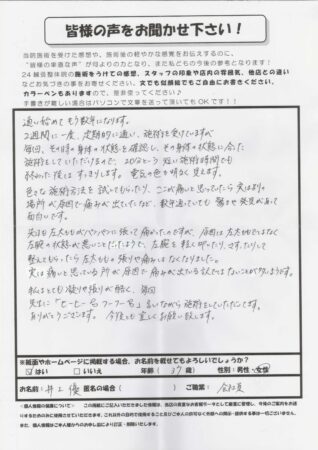 皆様の声をお聞かせ下さい!
当院施術を受けた感想や、施術後の軽やかな感覚をお伝えするのに、
"皆様の率直な声"が何よりの力となり、また私どもの今後の参考となります!
24鍼灸整体院の施術をうけての感想、スタッフの印象や店内の雰囲気、他店との違い
などお気づきの事をお寄せください。文でも似顔絵でもご自由にお書きください。
カラーペンもありますので、是非使ってください♪
手書きが難しい場合はパソコンで文章を送って頂いてもOKです!!
通い始めてもう数年になります。
2週間に一度、定期的に通い、施術を受けていますが
毎回、その時の身体の状態を確認し、その身体の状態に合った
施術をしていただけるので、20分という短い施術時間でも
終わった後にはすっきりします。電気の色も明るく見えます。
色々な施術方法を試してもらったり、ここが痛いと思っていたら実は別の
場所が原因で痛みが出ていたなど、数年通っていても驚きや発見があって
面白いです。
先日も左太ももがパンパンに張って痛かったのですが、原因は左太ももではなく
左腕の状態が悪いことだったようで、左腕を軽く叩いたり、さすったりして
整えてもらったら左太ももの張りや痛みはなくなりました。
実は痛いと思っている所が原因で痛みが出ている訳ではないことが多いようです。
私はとにかく凝りや張りが酷く、毎回
先生に「ヒーヒー」「フーフー」言いながら施術をしていただいてます。
ありがとうございます。今後とも宜しくお願い致します。
※紙面やホームページに掲載する場合、お名前を載せてもよろしいでしょうか?
☑はい □いいえ 年齢( 37 歳) 性別:男性・女性
お名前:井上 優 匿名の場合( ) ご職業: 会社員